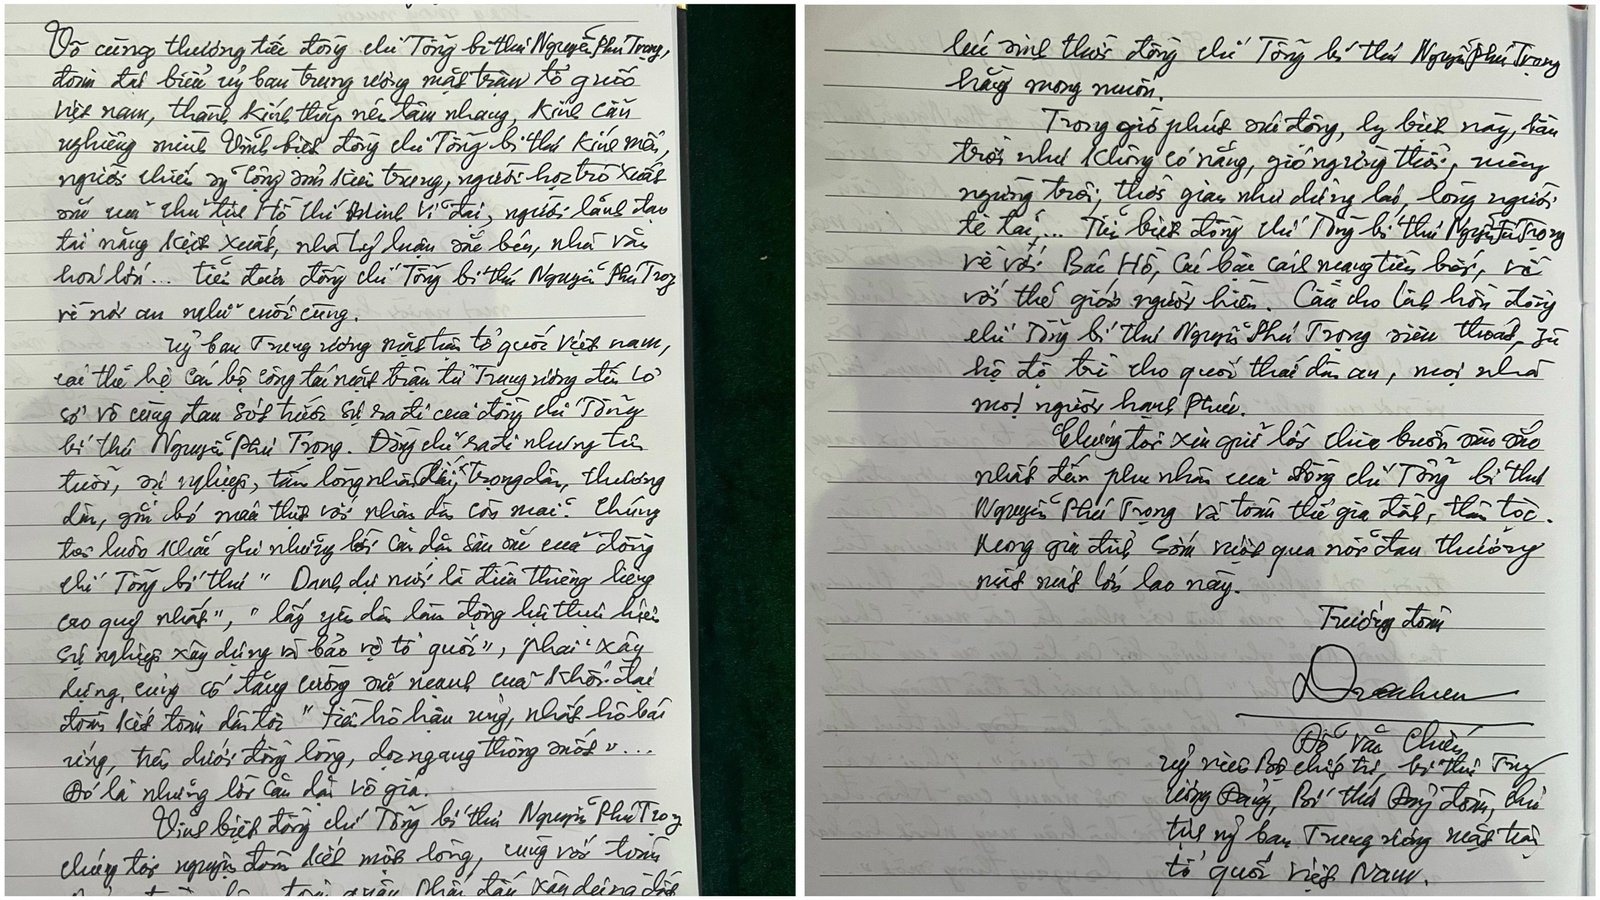 Vô cùng thương tiếc đồng chí Tổng bí thư Nguyễn Phú Trọng,
đoàn đại biểu uỷ ban trung ương mặt trận tổ quốc
việt nam, thành kính thắp nén tâm nhang, kính cẩn
nghiêng mình Vĩnh biệt đồng chí Tổng bí thư kính mến,
người chiến sỹ cộng sản kiên trung, người học trò xuất
sắc của chủ tịch Hồ Chí Minh vĩ đại, người lãnh đạo
tài năng kiệt xuất, nhà lý luận sắc bén, nhà văn
hoá lớn... tiễn đưa đồng chí Tổng bí thư Nguyễn Phú Trọng
về nơi an nghỉ cuối cùng.
Uỷ ban Trung ương mặt trận tổ quốc việt nam,
các thế hệ cán bộ công tác mặt trận từ Trung ương đến cơ
sở vô cùng đau xót trước sự ra đi của đồng chí Tổng
bí thư Nguyễn Phú Trọng. Đồng chí ra đi nhưng tên
tuổi, sự nghiệp, tấm lòng nhân ái, trọng dân, thương
dân, gắn bó máu thịt với nhân dân còn mãi. Chúng
tôi luôn khắc ghi những lời căn dặn sâu sắc của đồng
chí Tổng bí thư " Danh dự mới là điều thiêng liêng
cao quý nhất", " lấy yên dân làm động lực thực hiện
sự nghiệp xây dựng và bảo vệ tổ quốc", phải xây
dựng, củng cố tăng cường sức mạnh của khối đại
đoàn kết toàn dân tộc " tiền hô hậu ủng, nhất hô bá
ứng, trên dưới đồng lòng, dọc ngang thông suốt"...
Đó là những lời căn dặn vô giá.
Vĩnh biệt đồng chí Tổng bí thư Nguyễn Phú Trọng
chúng tôi nguyện đoàn kết một lòng, cùng với toàn
toàn quân phấn đấu xây dựng đất
lúc sinh thời đồng chí Tổng bí thư Nguyễn Phú Trọng
hằng mong muốn.
Trong giờ phút xúc động, ly biệt này, bầu
trời như không có nắng, gió ngừng thổi, mây
ngừng trôi; thời gian như dừng lại, lòng người
tê tái... Tiễn biệt đồng chí Tổng bí thư Nguyễn Phú Trọng
về với Bác Hồ, các bậc cách mạng tiền bối, về
với thế giới người hiền. Cầu cho linh hồn đồng
chí Tổng bí thư Nguyễn Phú Trọng siêu thoát,
hộ độ trì cho quốc thái dân an, mọi nhà
mọi người hạnh phúc.
Chúng tôi xin gửi lời chia buồn sâu sắc
nhất đến phu nhân của đồng chí Tổng bí thư
Nguyễn Phú Trọng và toàn thể gia đình, thân tộc.
Mong gia đình sớm vượt qua nỗi đau thương
mất mát lớn lao này.
Trưởng đoàn
Đỗ Văn Chiến
uỷ viên Bộ chính trị, bí thư Trung
ương Đảng, Bí thư Đảng đoàn, chủ
tịch uỷ ban Trung ương mặt trận
tổ quốc việt Nam.